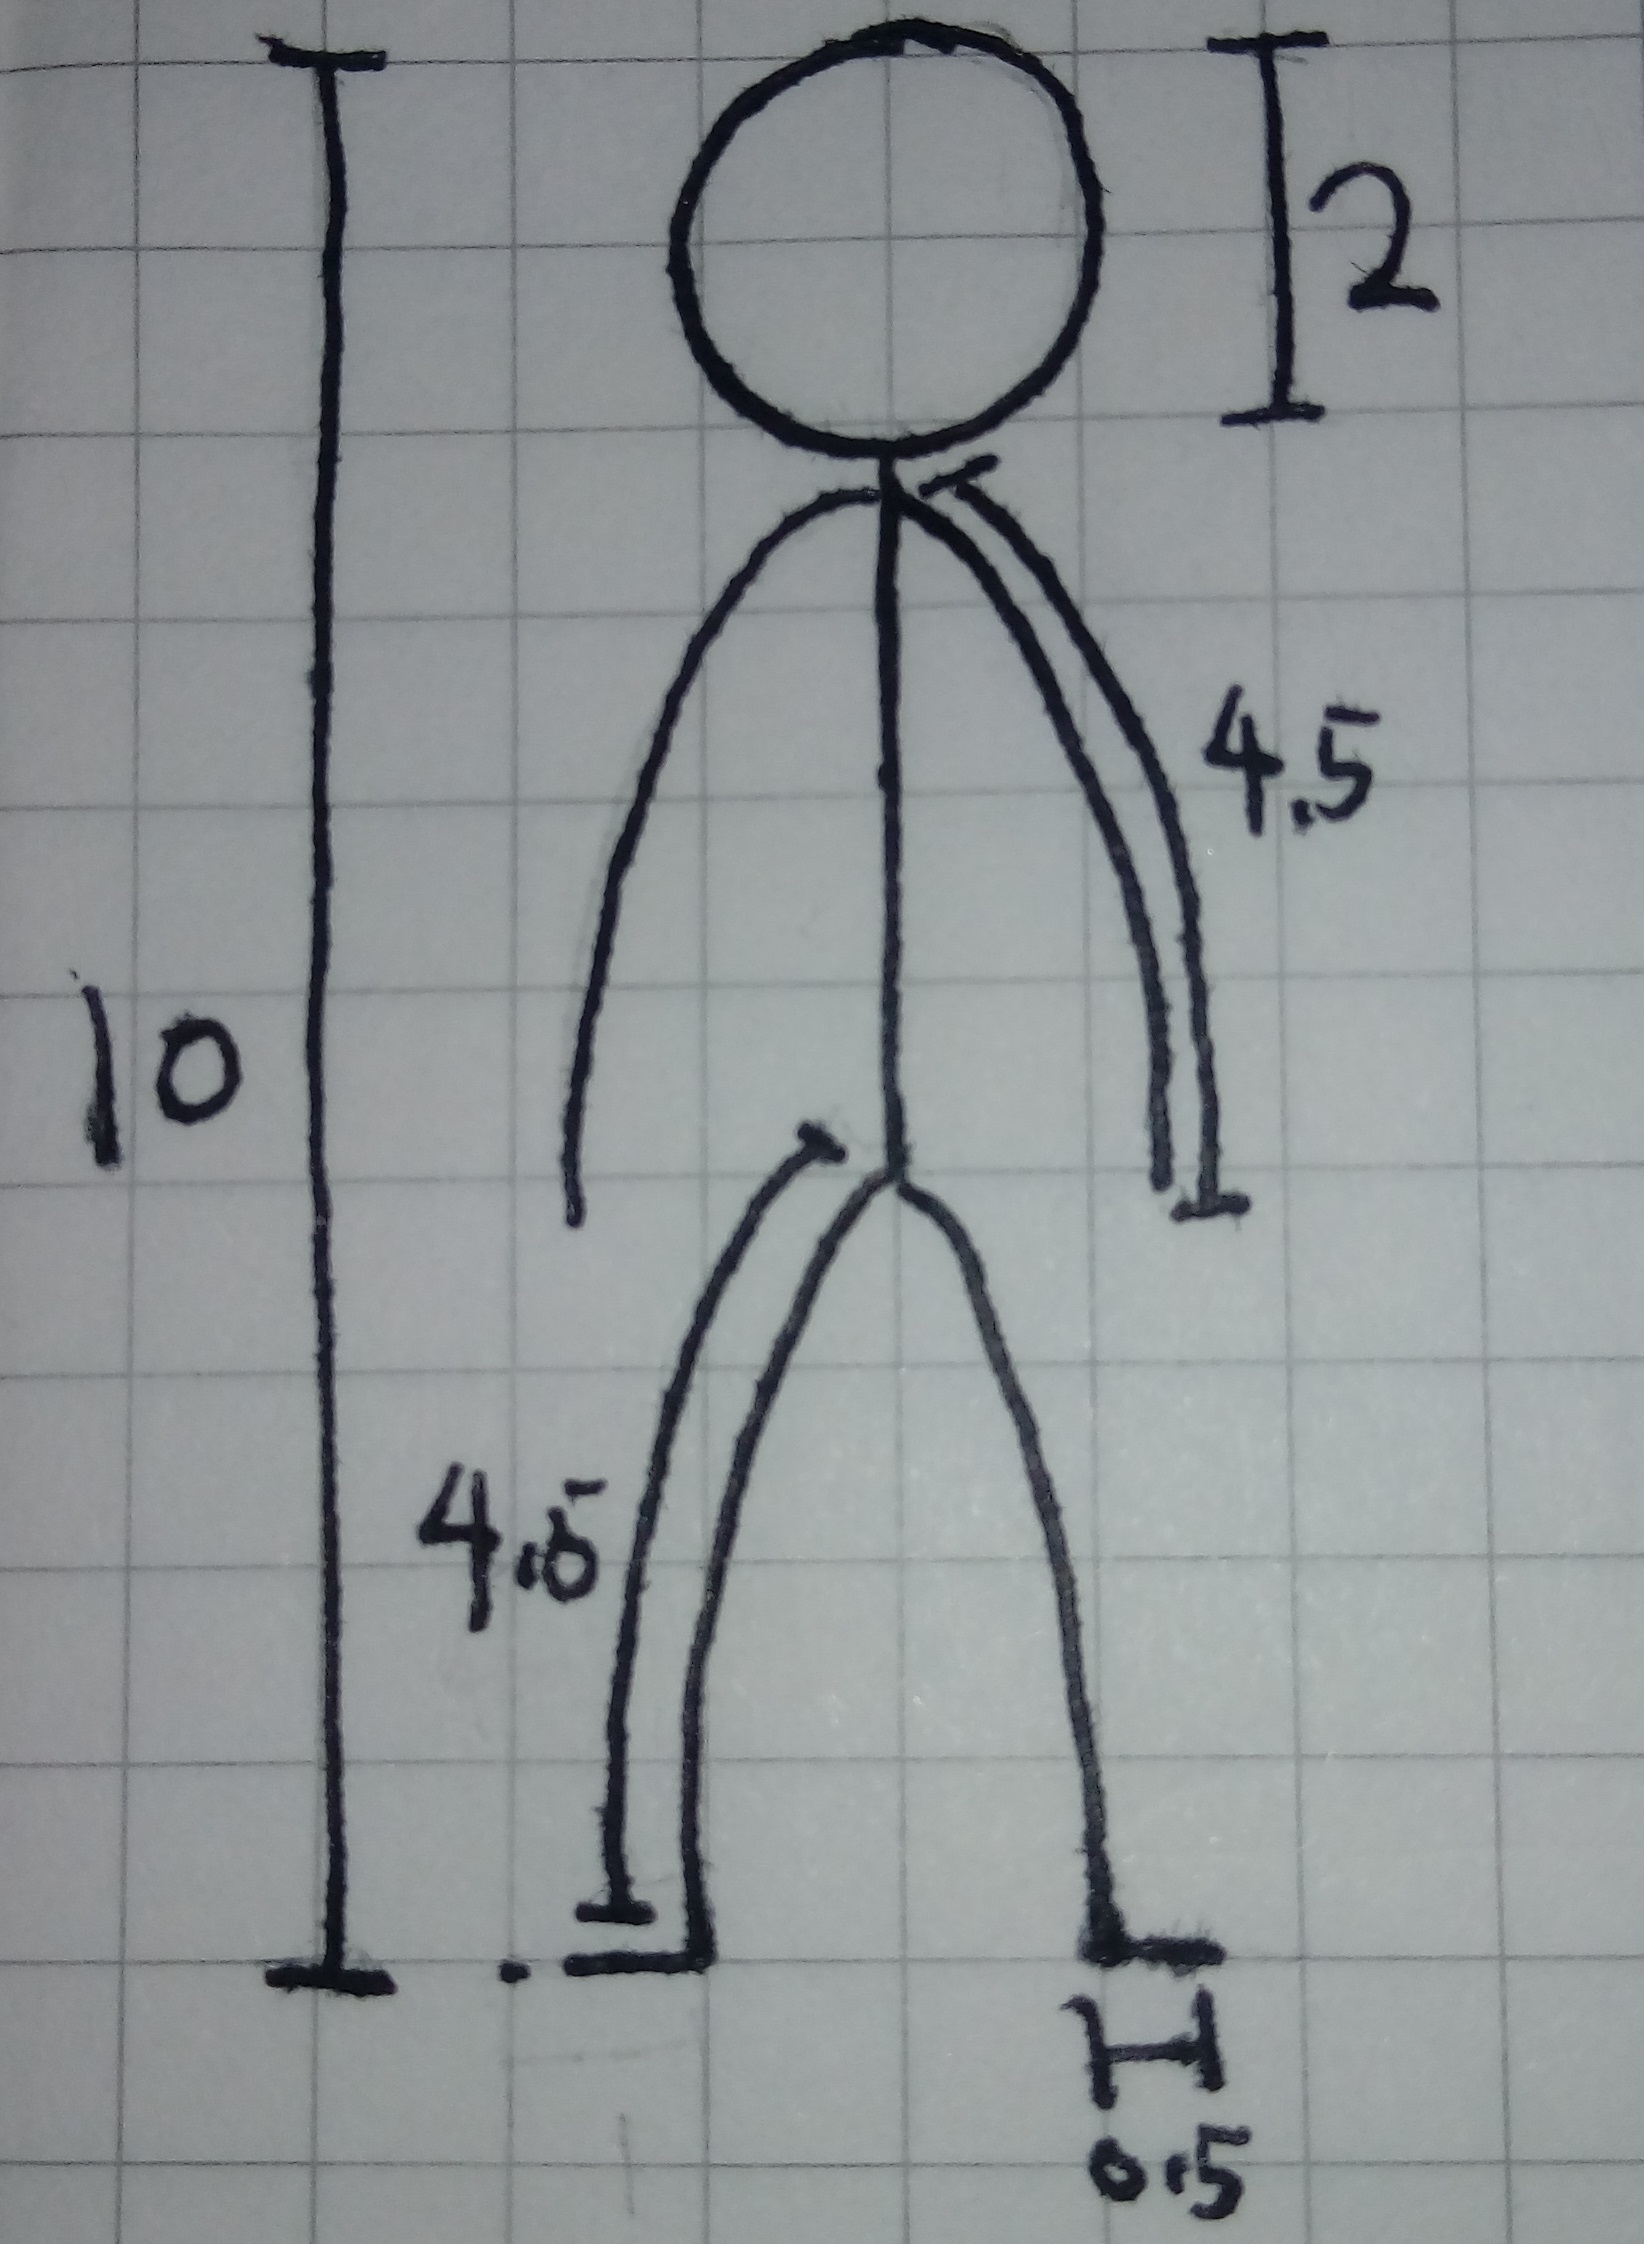 2
4.5
10
4.5
0.5